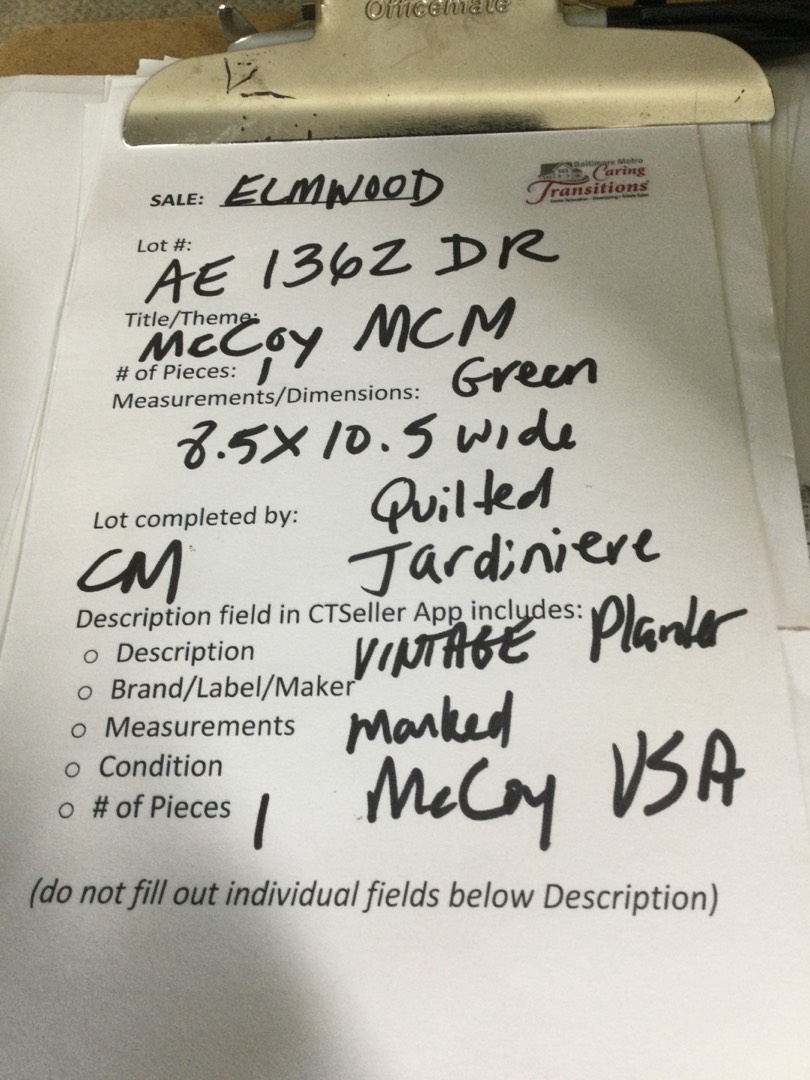 Officemate
SALE: ELMWOOD
Baltimore Metro
Caring
Transitions
Lot #:
AE 1362 DR
Title/Theme:
McCoy MCM
# of Pieces: 1 Green
Measurements/Dimensions:
8.5X10.5 wide
Quilted
Lot completed by:
CM Jardiniere
Description field in CTSeller App includes: Planter
○ Description VINTAGE
○ Brand/Label/Maker
○ Measurements marked
○ Condition McCoy USA
○ # of Pieces 1
(do not fill out individual fields below Description)